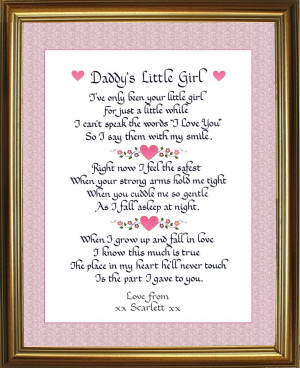 Daddy's Little Girl
I've only been your little girl
For just a little while
I can't speak the words "I Love You"
So I say them with my smile.
Right now I feel the safest
When your strong arms hold me tight
When you cuddle me so gentle
As I fall asleep at night.
When I grow up and fall in love
I know this much is true
The place in my heart he'll never touch
Is the part I gave to you.
Love from
xx Scarlett xx